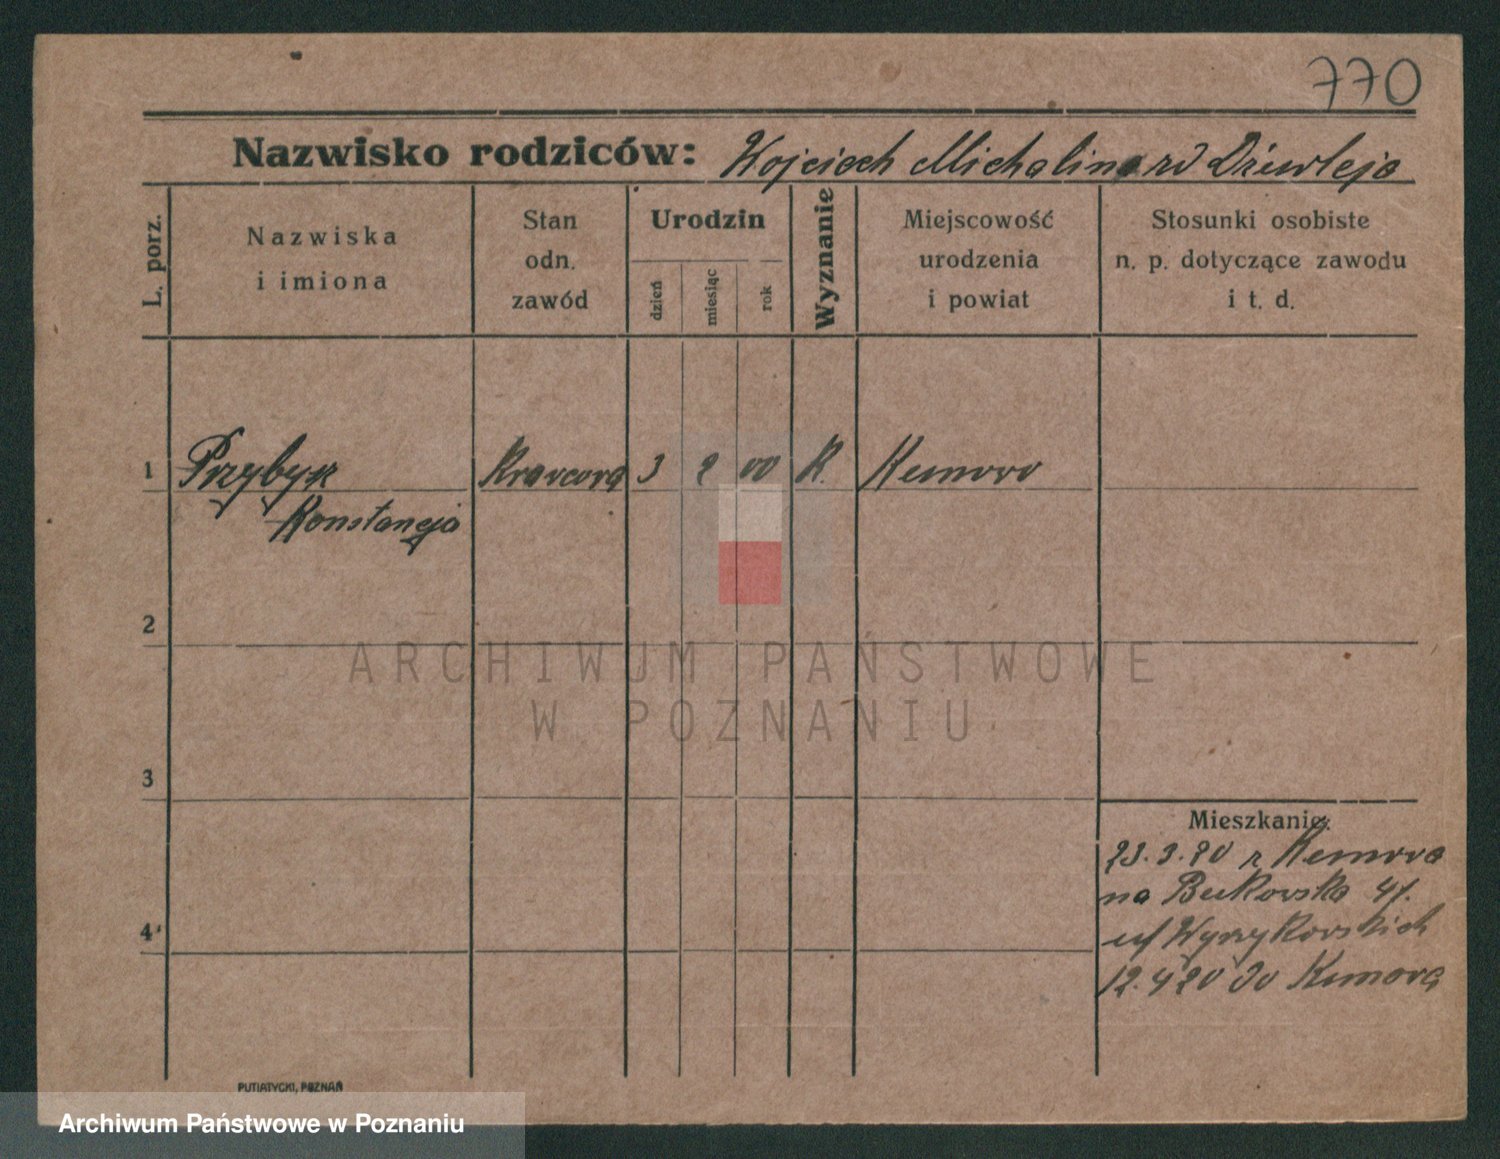 770
Nazwisko rodziców: Wojciech Michalina
L. porz.
Nazwiska
i imiona
Stan
odn.
zawód
Urodzin
dzień
miesiąc
rok
Wyznanie
Miejscowość
urodzenia
i powiat
Stosunki osobiste
n. p. dotyczące zawodu
i t. d.
1 Przybył Krawcowa 3 2 00 K.
Konstancja
2
3
4
Mieszkanie:
23.3.20 z
na Bukowska 41.
u/ Wyrzykowskich
12.4 20 do
PUTIATYCKI, POZNAŃ
ARCHIWUM PAŃSTWOWE
W POZNANIU
Archiwum Państwowe w Poznaniu